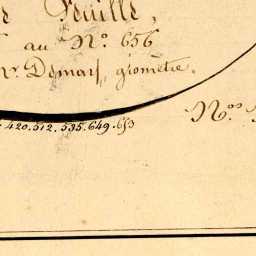 Feuille,
au N.º 656
Demars, géomètre.
N.ºs
420.512.535.649.653